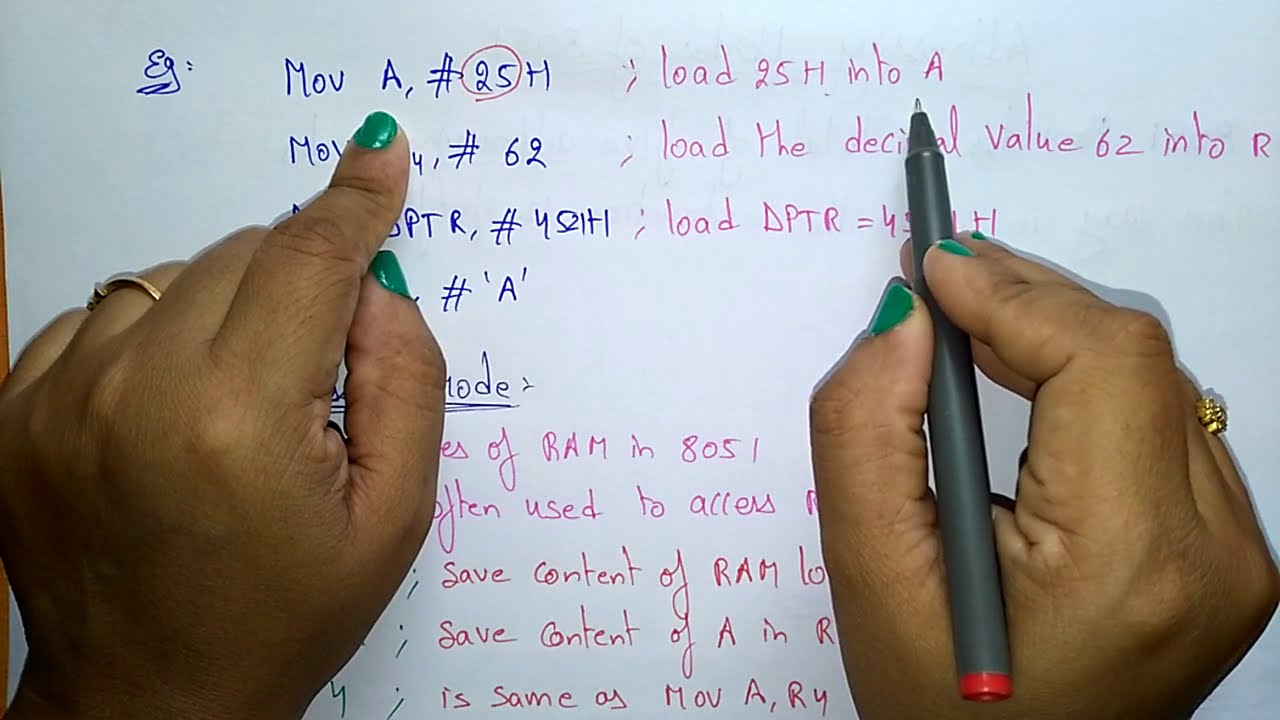 Eg:
Mov A, #25H ; load 25H into A
Mov 4, # 62 ; load the decimal value 62 into R
DPTR, # 4521H ; load DPTR = 4521H
, # 'A'
mode:
es of RAM in 8051
often used to access R
; save content of RAM lo
; save content of A in R
4 ; is same as Mov A, R4